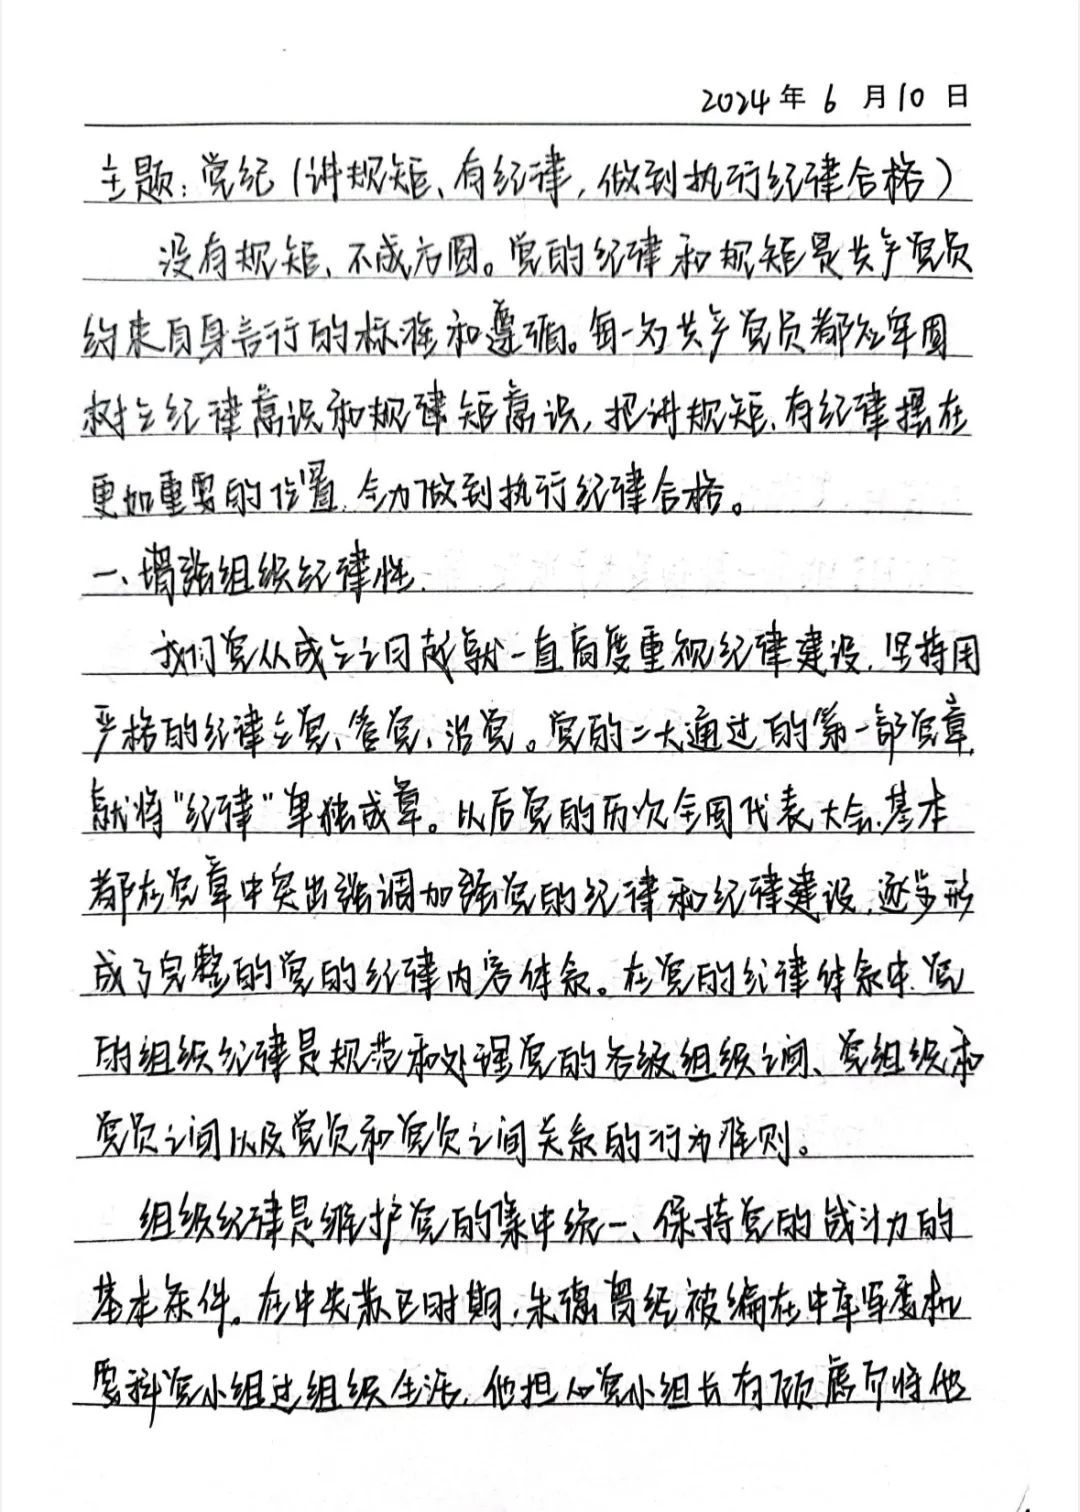 2024年6月10日
主题：党纪（讲规矩、有纪律，做到执行纪律合格）
没有规矩、不成方圆。党的纪律和规矩是共产党员
约束自身言行的标准和遵循。每一名共产党员都应牢固
树立纪律意识和规律矩意识，把讲规矩、有纪律摆在
更加重要的位置，全力做到执行纪律合格。
一、增强组织纪律性.
我们党从成立之日起就一直高度重视纪律建设，坚持用
严格的纪律立党、管党、治党。党的二大通过的第一部党章，
就将“纪律”单独成章。以后党的历次全国代表大会，基本
都在党章中突出强调加强党的纪律和纪律建设，逐步形
成了完整的党的纪律内容体系。在党的纪律体系中，党
的组织纪律是规范和处理党的各级组织之间、党组织和
党员之间以及党员和党员之间关系的行为准则。
组织纪律是维护党的集中统一、保持党的战斗力的
基本条件。在中央苏区时期，朱德曾经被编在中革军委机
要科党小组过组织生活，他担心党小组长有顾虑不将他